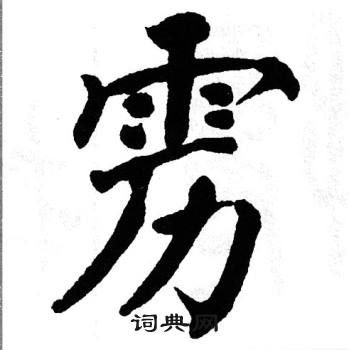 雳
词典网